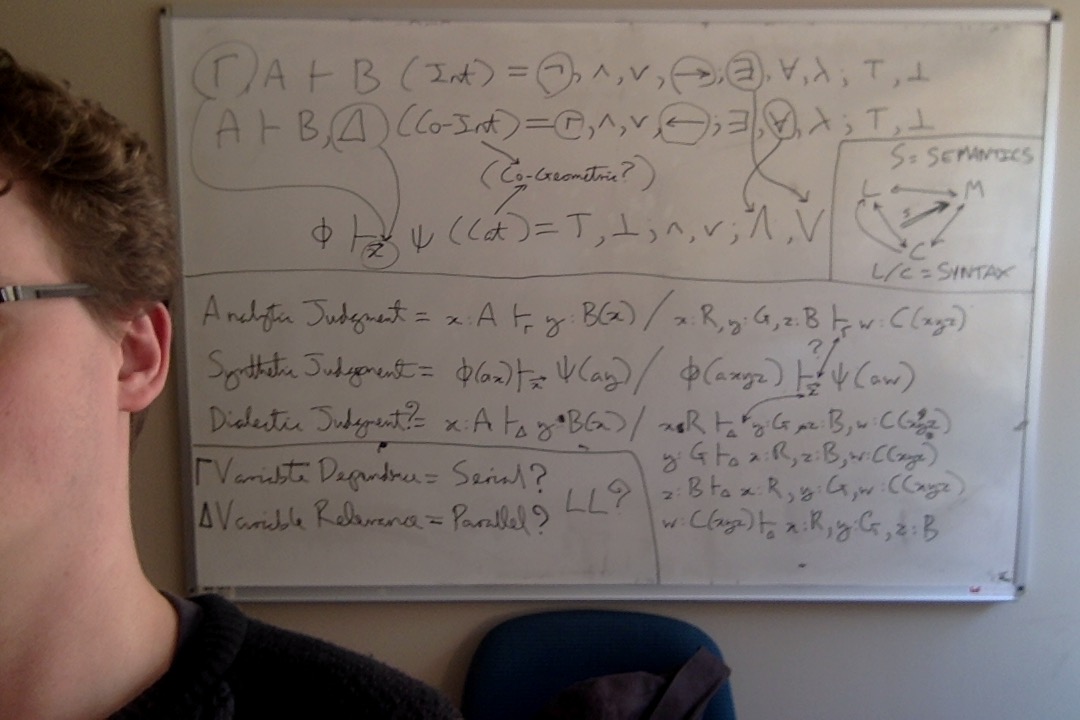 Γ, A ⊢ B (Int) = ¬, ∧, ∨, →; ∃, ∀, λ; ⊤, ⊥
A ⊢ B, Δ (Co-Int) = ⌐, ∧, ∨, ←; ∃, ∀, λ; ⊤, ⊥
(Co-Geometric?)
ϕ ⊢x⃗ ψ (Cat) = ⊤, ⊥; ∧, ∨; ⋀, ⋁
S = SEMANTICS
L M
S
C
L/C = SYNTAX
Analytic Judgment = x:A ⊢Γ y:B(x) / x:R, y:G, z:B ⊢Γ w:C(xyz)
?
Synthetic Judgement = ϕ(ax) ⊢x⃗ ψ(ay) / ϕ(axyz) ⊢z⃗ ψ(aw)
Dialectic Judgment? = x:A ⊢Δ y:B(x) / x:R ⊢Δ y:G, z:B, w:C(xyz)
y:G ⊢Δ x:R, z:B, w:C(xyz)
z:B ⊢Δ x:R, y:G, w:C(xyz)
w:C(xyz) ⊢Δ x:R, y:G, z:B
Γ Variable Dependence = Serial?
Δ Variable Relevance = Parallel?
LL?